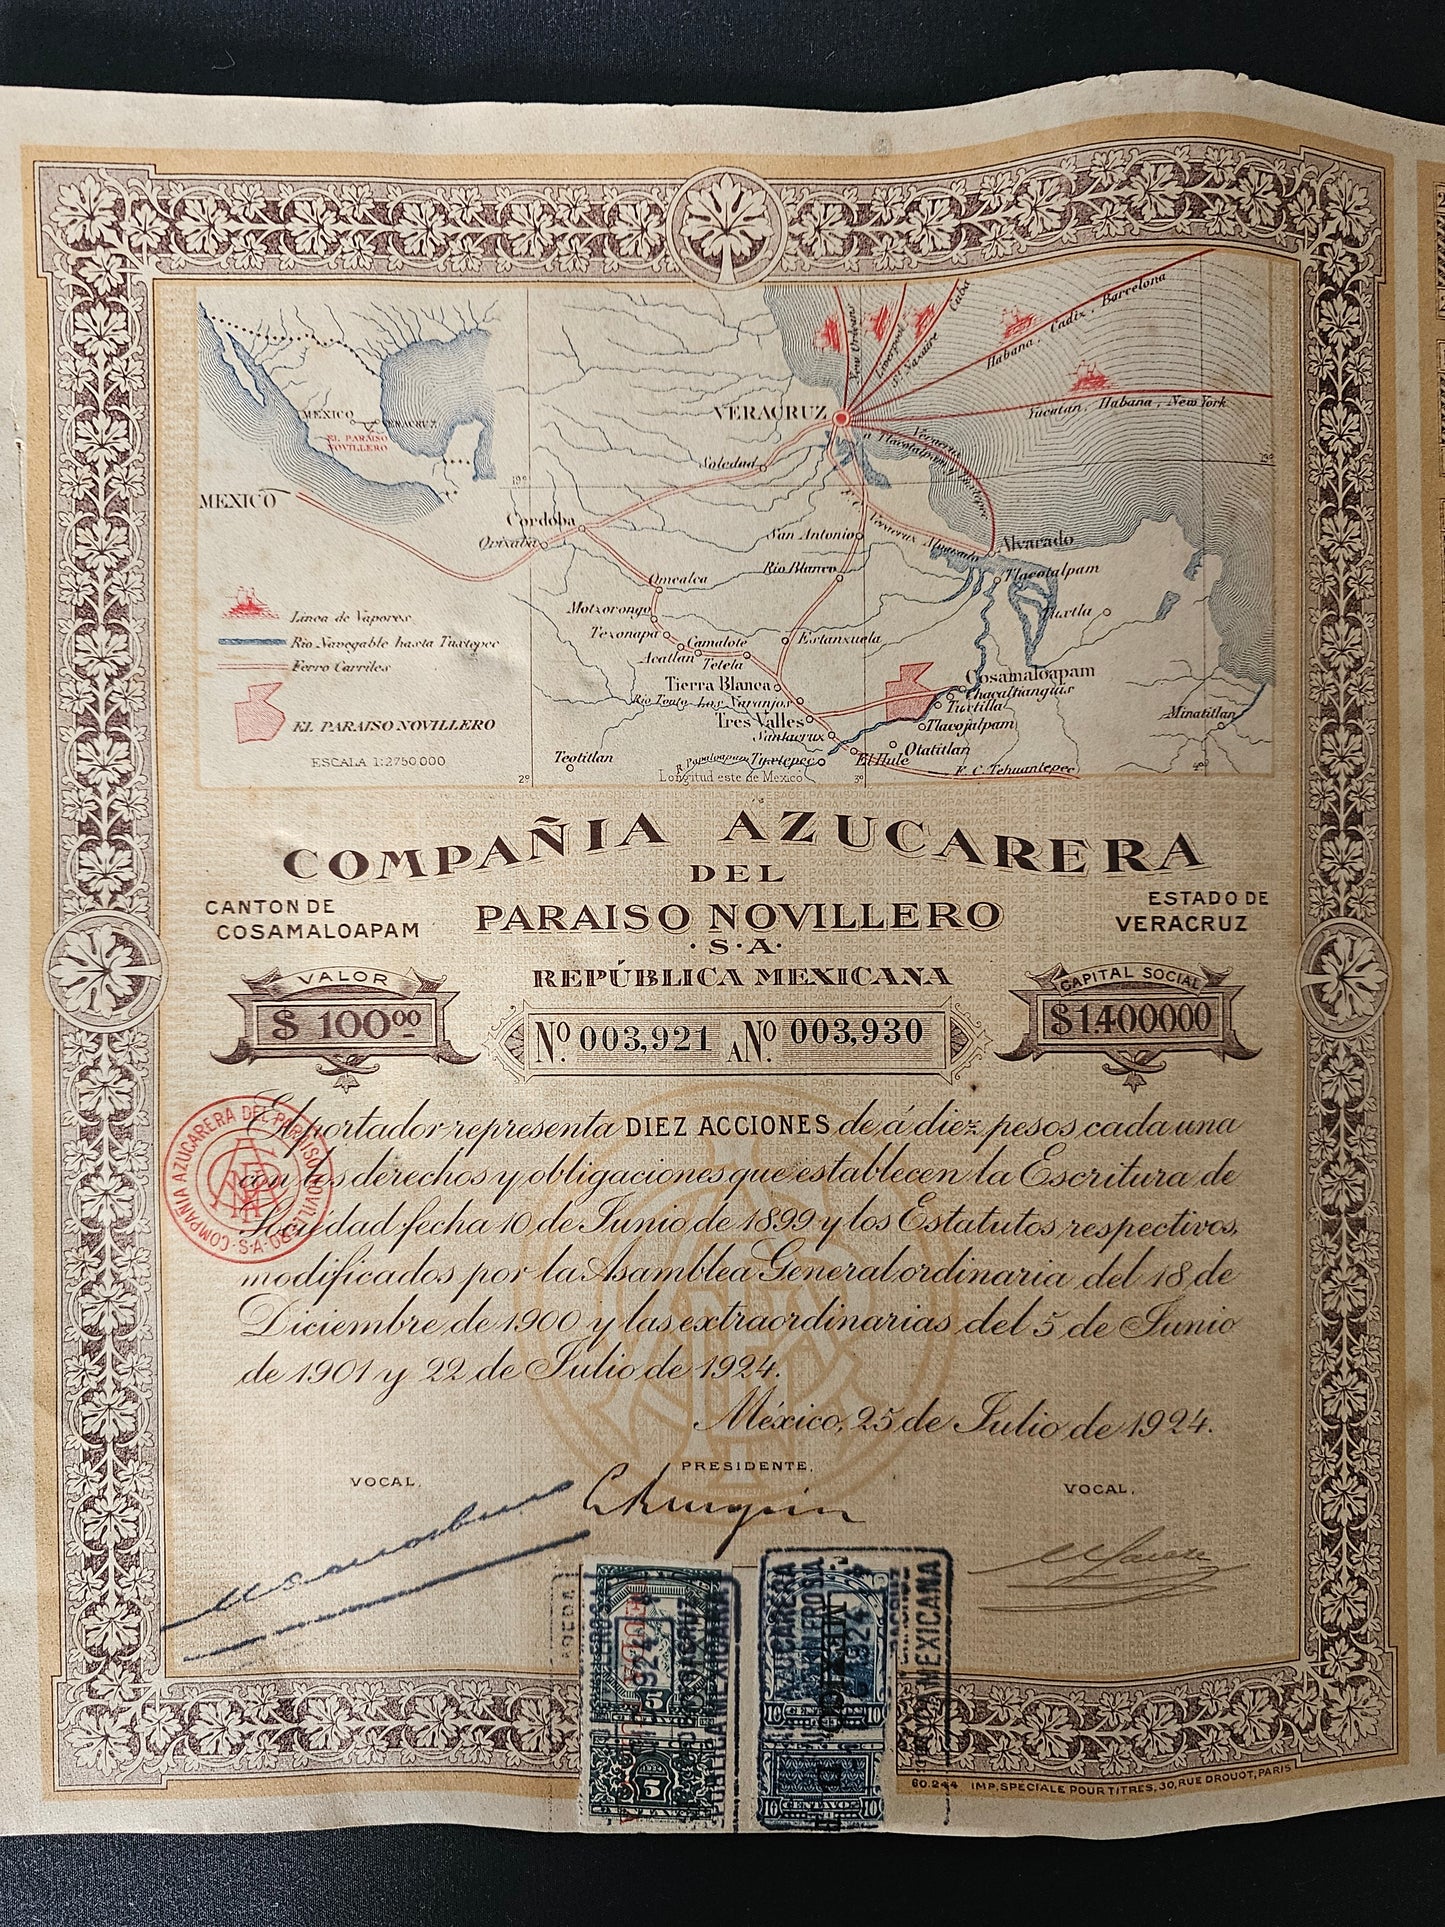 New Orleans
Liverpool
St. Nazaire
Cuba
Habana, Cadix, Barcelona
Yucatan, Habana, New York
VERACRUZ
MEXICO
VERACRUZ
EL PARAISO
NOVILLERO
Veracruz
a Tlacotalpam y Tuxtepec
Soledad
19º
19º
MEXICO
Cordoba
Orixaba
San Antonio
F. C. Veracruz Alvarado
Alvarado
Rio Blanco
Tlacotalpam
Omealca
Motzorongo
Tuxtla
Linea de Vapores
Tezonapa
Camalote
Estanzuela
Rio Navegable hasta Tuxtepec
Acatlan
Tetela
Ferro Carriles
Cosamaloapam
Tierra Blanca
Chacaltianguis
Rio Tonto
Los Naranjos
Tuxtilla
EL PARAISO NOVILLERO
Tres Valles
Tlacojalpam
Minatitlan
Santacruz
Otatitlan
ESCALA 1:2750000
Teotitlan
R. Papaloapam
Tuxtepec
El Hule
F. C. Tehuantepec
2º
Longitud este de Mexico
3º
4º
COMPAÑIA AZUCARERA
DEL
CANTON DE
COSAMALOAPAM
PARAISO NOVILLERO
ESTADO DE
VERACRUZ
·S·A·
REPÚBLICA MEXICANA
VALOR
$ 100.00
Nº. 003,921 A Nº. 003,930
CAPITAL SOCIAL
$1.400000
COMPAÑIA AZUCARERA DEL PARAISO NOVILLERO·S·A·
El portador representa DIEZ ACCIONES de á diez pesos cada una
con los derechos y obligaciones que establecen la Escritura de
Sociedad fecha 10 de Junio de 1899 y los Estatutos respectivos,
modificados por la Asamblea General ordinaria del 18 de
Diciembre de 1900 y las extraordinarias del 5 de Junio
de 1901 y 22 de Julio de 1924.
México, 25 de Julio de 1924.
VOCAL,
PRESIDENTE,
VOCAL,
AZUCARERA
1924
MEXICANA
5
5
10 CENTAVOS 10
10 CENTAVOS 10
60.244 IMP. SPECIALE POUR TITRES, 30, RUE DROUOT, PARIS